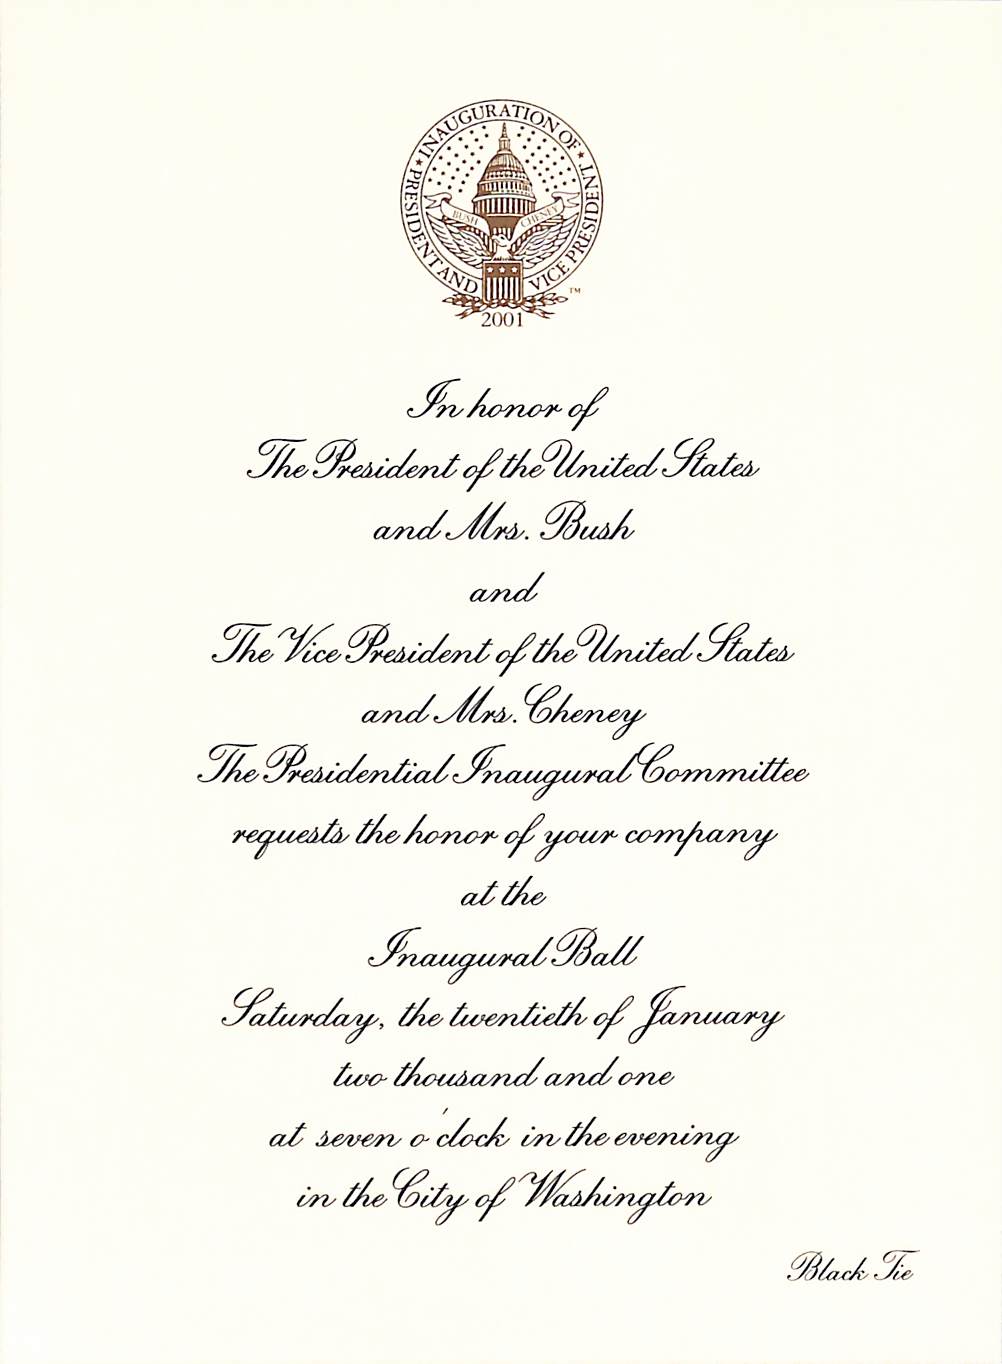 ★ INAUGURATION OF ★
PRESIDENT AND VICE PRESIDENT
BUSH CHENEY
™
2001
In honor of
The President of the United States
and Mrs. Bush
and
The Vice President of the United States
and Mrs. Cheney
The Presidential Inaugural Committee
requests the honor of your company
at the
Inaugural Ball
Saturday, the twentieth of January
two thousand and one
at seven o'clock in the evening
in the City of Washington
Black Tie